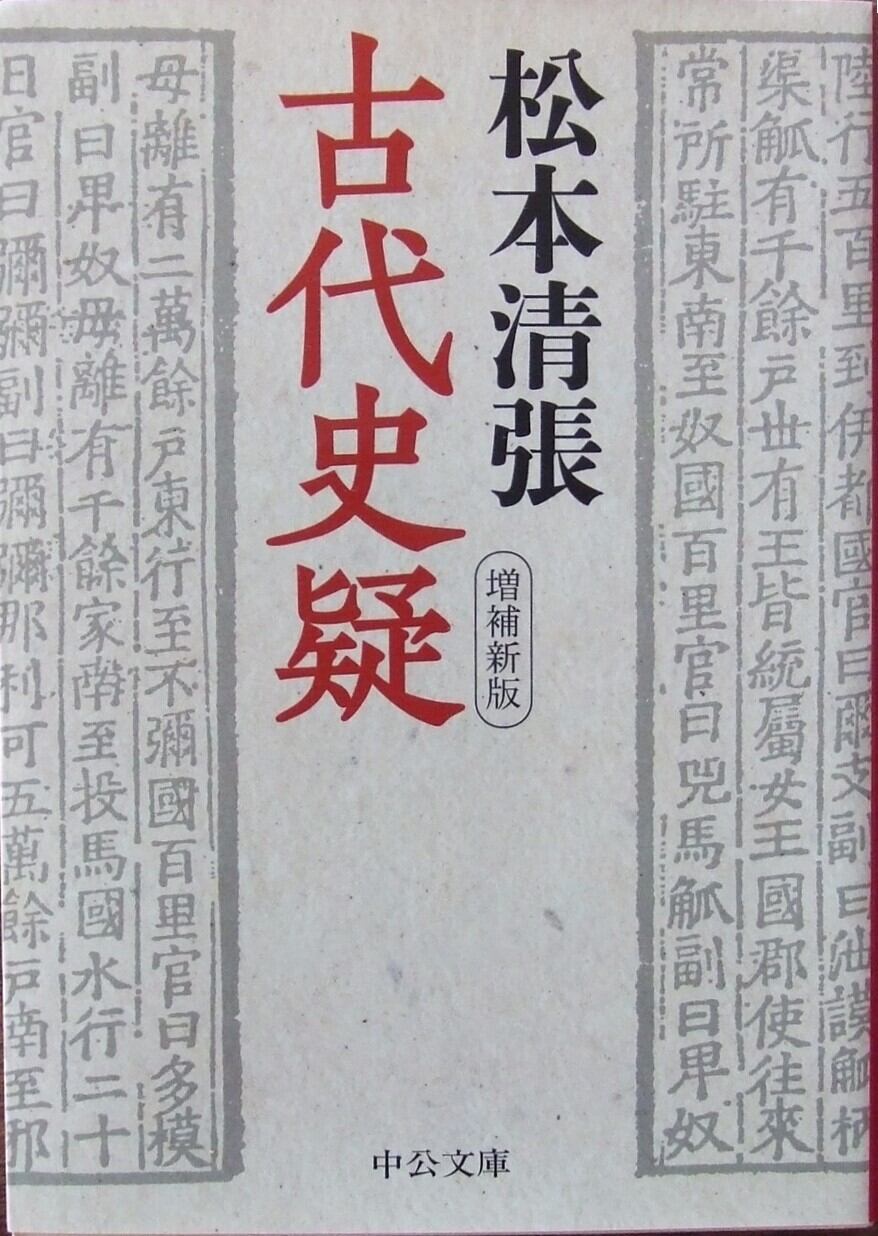 陸行五百里到伊都國官曰爾支副曰泄謨觚柄
渠觚有千餘戸丗有王皆統屬女王國郡使往來
常所駐東南至奴國百里官曰兕馬觚副曰卑奴
松本清張
増補新版
古代史疑
母離有二萬餘戸東行至不彌國百里官曰多模
副曰卑奴毋離有千餘家南至投馬國水行二十
日官曰彌彌副曰彌彌那利可五萬餘戸南至邪
中公文庫